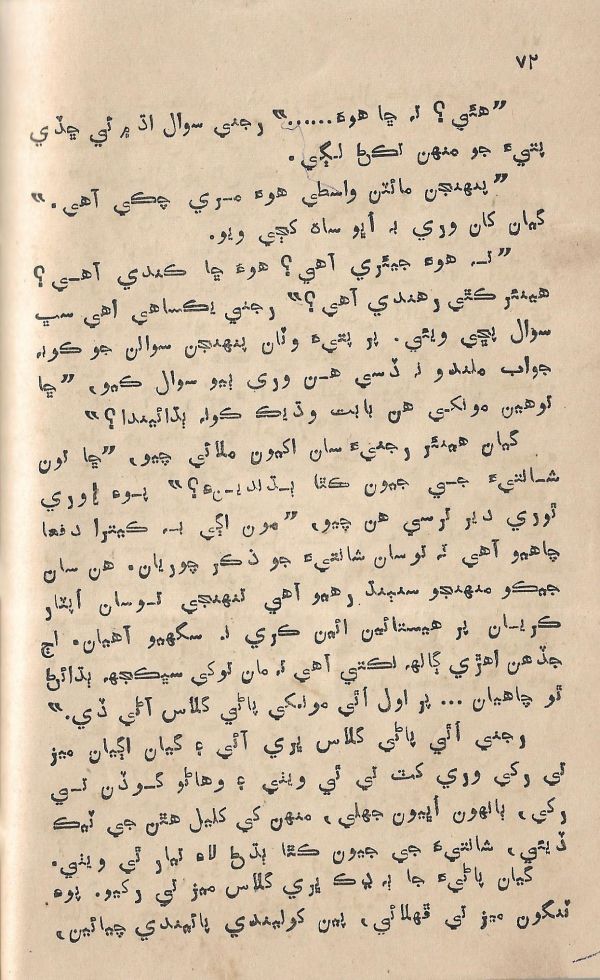 ٧٢
”هئي؟ تہ ڇا هوءَ......“ رجني سوال اڌ ۾ ئي ڇڏي
پتيءَ جو منهن تڪڻ لڳي.
”پنهنجن مائٽن واسطي هوءَ مري چڪي آهي.“
گيان کان وري بہ اڀو ساه کڄي ويو.
”تہ هوءَ جيئري آهي؟ هوءَ ڇا ڪندي آهي؟
هينئر ڪٿي رهندي آهي؟“ رجني يڪساهي اهي سڀ
سوال پڇي ويئي. پر پتيءَ وٽان پنهنجن سوالن جو ڪوبہ
جواب ملندو نہ ڏسي هن وري ٻيو سوال ڪيو، ”ڇا
توهين مونکي هن بابت وڌيڪ ڪونہ ٻڌائيندا؟“
گيان هينئر رجنيءَ سان اکيون ملائي چيو، ”ڇا تون
شانتيءَ جي جيون ڪٿا ٻڌندينءَ؟“ پوءِ وري
ٿوري دير ترسي هن چيو، ”مون اڳي بہ ڪيترا دفعا
چاهيو آهي تہ توسان شانتيءَ جو ذڪر چوريان. هن سان
جيڪو منهنجو سنٻنڌ رهيو آهي تنهنجي توسان اپٽار
ڪريان پر هيستائين ائين ڪري نہ سگهيو آهيان. اڄ
جڏهن اهڙي ڳالهہ نڪتي آهي تہ مان توکي سڀڪجهہ ٻڌائڻ
ٿو چاهيان ... پر اول اٿي مونکي پاڻي گلاس آڻي ڏي.“
رجني اُٿي پاڻي گلاس ڀري آئي ۽ گيان اڳيان ميز
تي رکي وري کٽ تي ٿي ويٺي ۽ وهاڻو گوڏن تي
رکي، ٻانهون اڀيون جهلي، منهن کي کليل هٿن جي ٽيڪ
ڏيئي، شانتيءَ جي جيون ڪٿا ٻڌڻ لاءِ تيار ٿي ويٺي.
گيان پاڻيءَ جا ٻہ ڍڪ ڀري گلاس ميز تي رکيو. پوءِ
ٽنگون ميز تي ڦهلائي، پين کوليندي پائيندي چيائين،